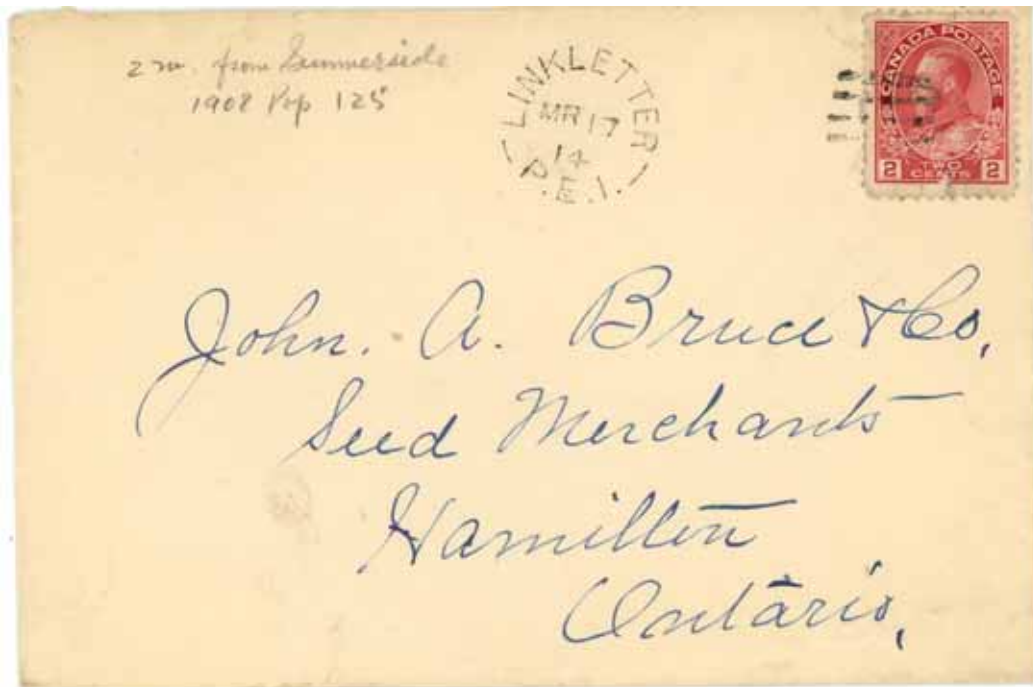 2 m. from Summerside
1908 Pop 125
LINKLETTER
MR 17
14
P.E.I.
CANADA POSTAGE
2 TWO CENTS 2
John. A. Bruce & Co,
Seed Merchants
Hamilton
Ontario,